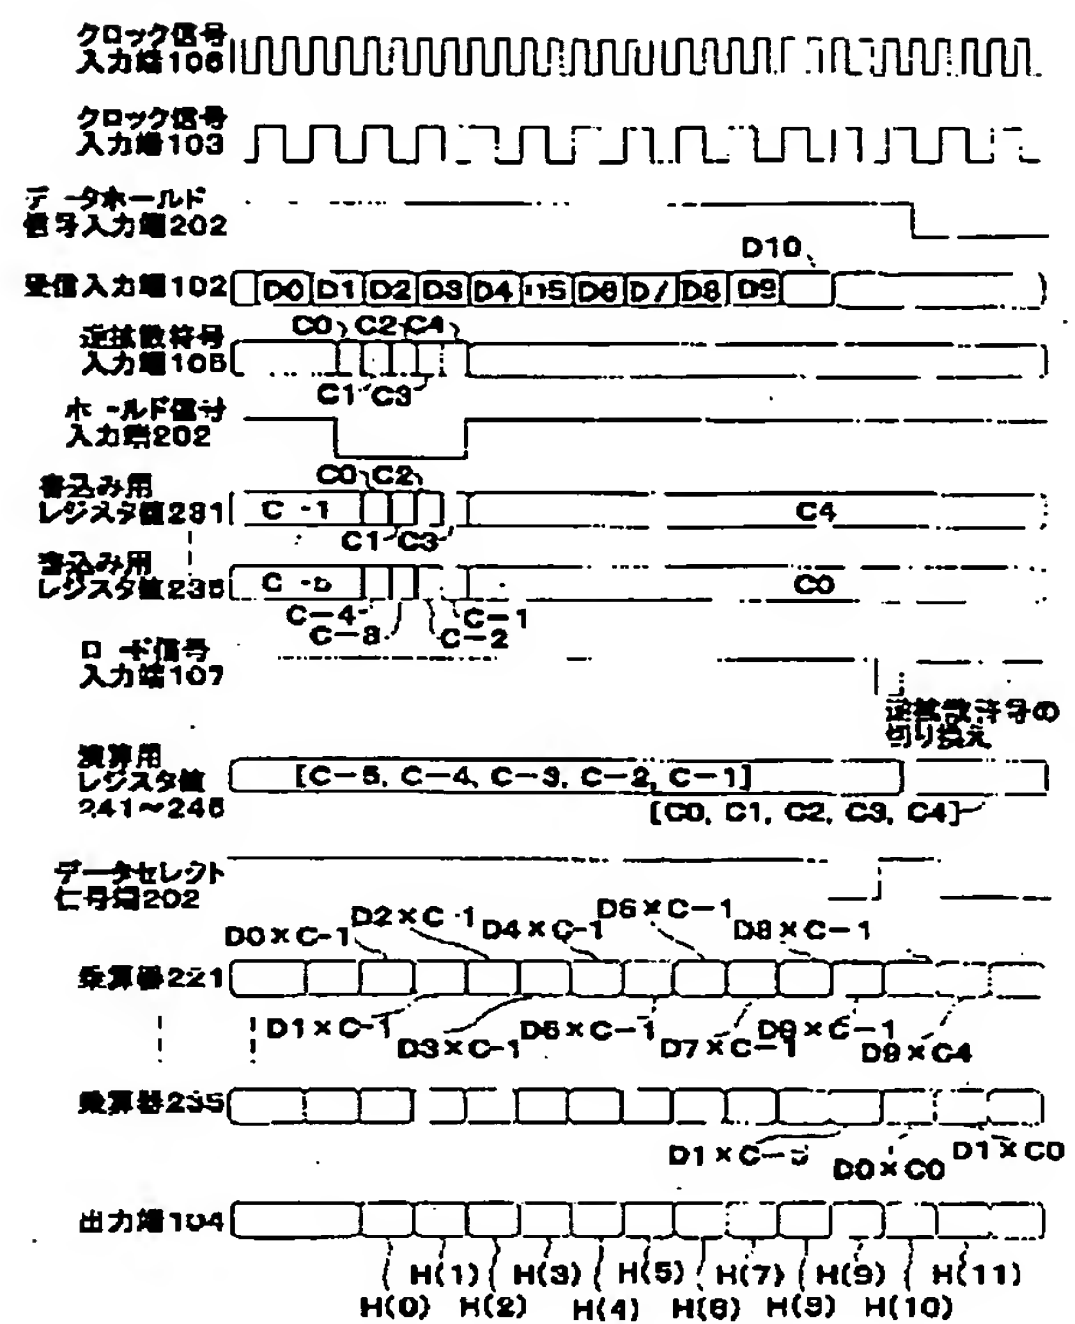 クロック信号
入力端106
クロック信号
入力端103
データホールド
信号入力端202
D10
受信入力端102
D0 D1 D2 D3 D4 D5 D6 D7 D8 D9
C0 C2 C4
逆拡散符号
入力端105
C1 C3
ホールド信号
入力端202
C0 C2
書込み用
レジスタ値231
C-1
C4
C1 C3
書込み用
レジスタ値235
C-5
C0
C-4 C-1
C-3 C-2
ロード信号
入力端107
逆拡散符号の
切り換え
演算用
レジスタ値
241~245
[C-5, C-4, C-3, C-2, C-1]
[C0, C1, C2, C3, C4]
データセレクト
信号端202
D0×C-1 D2×C-1 D4×C-1 D6×C-1 D8×C-1
乗算器221
D1×C-1 D3×C-1 D5×C-1 D7×C-1 D9×C-1 D9×C4
乗算器235
D1×C-5 D0×C0 D1×C0
出力端104
H(1) H(3) H(5) H(7) H(9) H(11)
H(0) H(2) H(4) H(6) H(8) H(10)